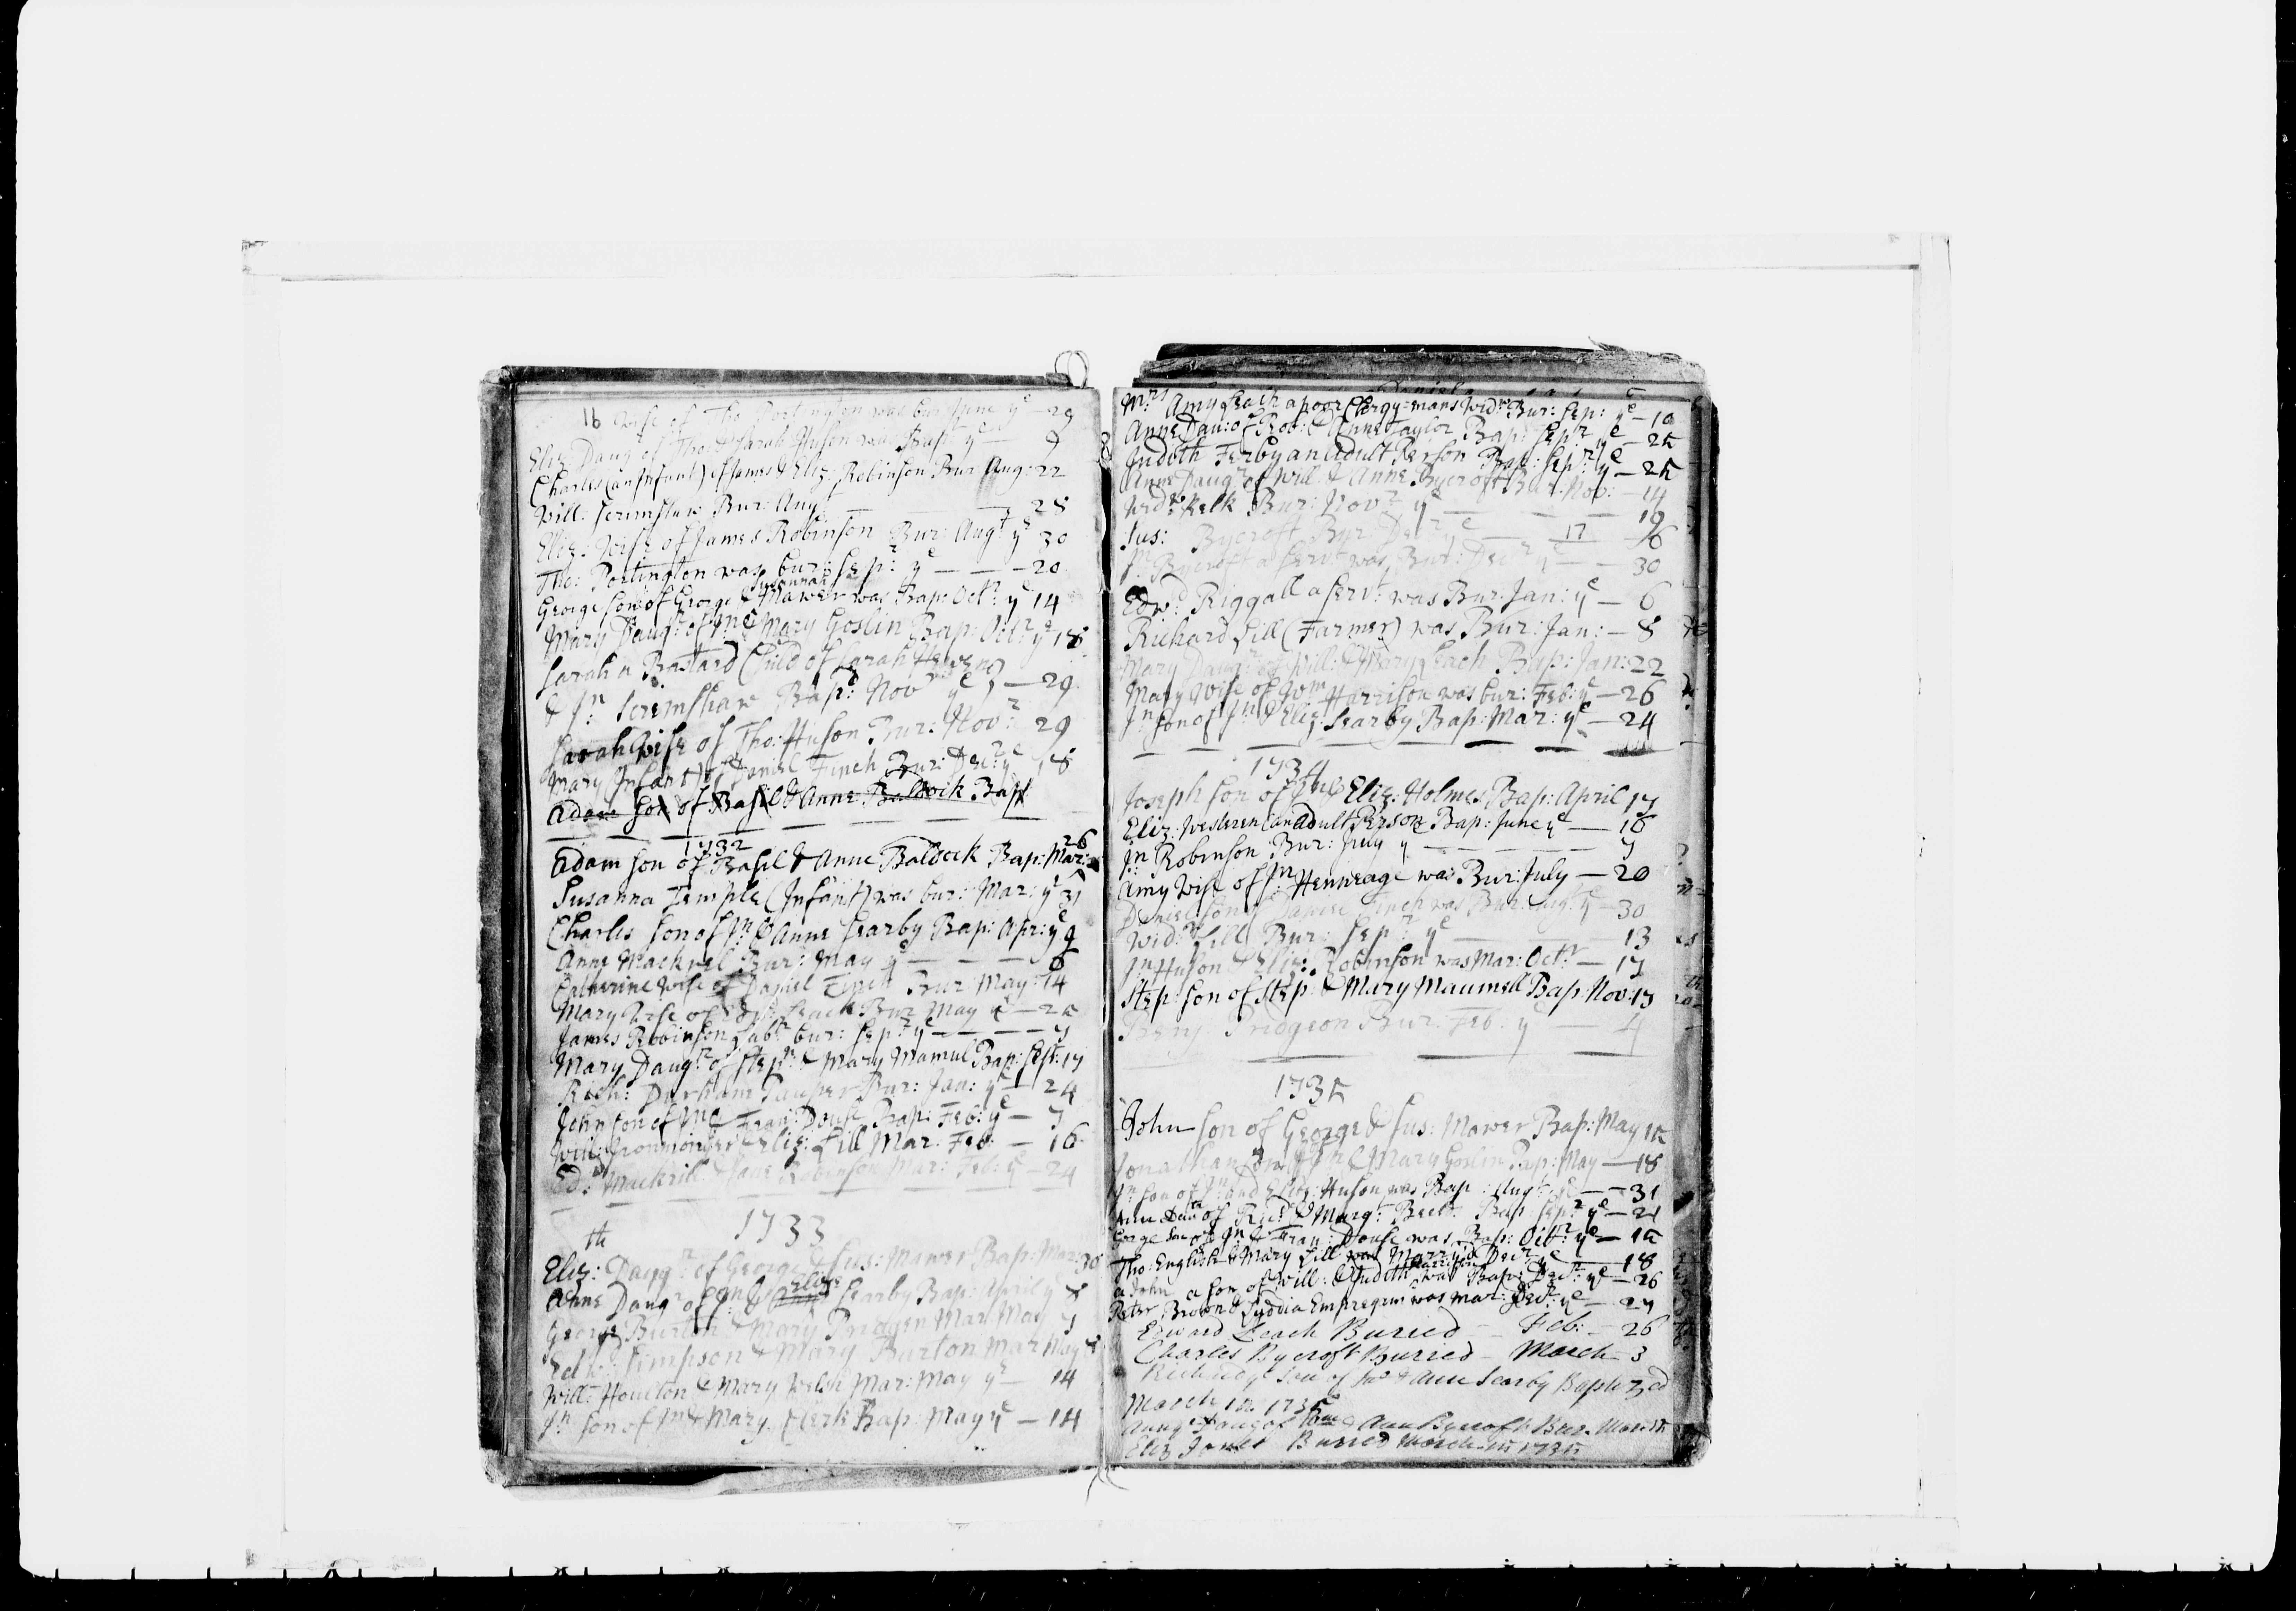 16 Wife of Tho: Portington was bur: June ye — 29
Eliz Daug of Tho: & Sarah Huson was Bap: ye — 9
Charles (an Infant) of James & Eliz: Robinson Bur Aug: 22
Will: Scrimshaw Bur: Augt — — 28
Eliz: Wife of James Robinson Bur: Augt ye 30
Tho: Portington was bur: Sepr: ye — — — 20
George son of George & Susannah Mawer was Bap: Octr: ye 14
Mary Daugr: of Jn: & Mary Goslin Bap: Octr: ye 18
Sarah a Bastard Child of Sarah
& Jn: Scrimshaw Bap: Novr ye — 29
Sarah Wife of Tho: Huson Bur: Novr: 29
Mary (Infant) of Daniel Finch Bur: Decr: ye 18
Adam Son of Basil & Anne Baldock Bap
1732
Adam son of Basil & Anne Baldock Bap: Mar: 26
Susanna Temple (Infant) was bur: Mar: ye 31
Charles son of Jn: & Anne Searby Bap: Apr: ye 9
Anne Mackrel Bur: May ye — — — 6
Catherine Wife of Daniel Finch Bur: May: 14
Mary Wife of Edw: Leach Bur May ye — 25
James Robinson Labr bur: Sepr ye — — — — 7
Mary Daugr: of Stepn: & Mary Mamul Bap: Sept: 17
Rich: Durham Pauper Bur: Jan: ye — 24
John Son of Jn & Fran: Douse Bap: Feb: ye — 7
Will: Ironmonger & Eliz: Lill Mar: Feb: — 16
Ed: Mackril & Jane Robinson Mar: Feb: ye — 24
1733
th
Eliz: Daugr: of George & Sus: Mawer Bap: Mar: 30
Anne Daugr of Jn: & Anne Eliz: Searby Bap: April ye 8
George Burton & Mary Pridgen Mar: May 7
Edw: Simpson & Mary Burton Mar May
Will: Houlton & Mary Welsh Mar: May ye — 14
Jn: son of Jn & Mary Clerk Bap: May ye — 14
Mrs Amy Leach a poor Clergy-mans Widw Bur: Sep: ye — 10
Anne Dau: of Rob: & Anne Taylor Bap: Sepr ye — 25
Judeth Ferby an adult Person Bap: Sepr: ye — 25
Anne Daugr of Will: & Anne Bycroft Bur: Nov: — 14
Widw Kelk Bur: Novr ye — — — 19
Sus: Bycroft Bur: Decr ye — 17 16
Jn: Bycroft a Servt was Bur: Decr ye — — 30
Edwd: Riggall a Servt: was Bur: Jan: ye — 6
Richard Lill (Farmer) was Bur: Jan: — 8
Mary Daugr: of Will: & Mary Leach Bap: Jan: 22
Mary Wife of Wm Harrison was bur: Feb: ye — 26
Jn: son of Jn: & Eliz: Searby Bap: Mar: ye — 24
1734
Joseph son of Jn: & Eliz: Holmes Bap: April 17
Eliz: Westeren (an adult Person Bap: June ye — 16
Jn: Robinson Bur: July ye — — — — 7
Amy Wife of Jn: Henneage was Bur: July — 20
Daniel son of Daniel Finch was Bur: Augt: ye — 30
Widw: Lill Bur: Sepr ye — — — 13
Jn: Huson & Eliz: Robinson was Mar: Octr — 17
Step: son of Step: & Mary Maumell Bap: Nov: 17
Benj Pridgeon Bur: Feb: ye — 4
1735
John son of George & Sus: Mawer Bap: May 15
Jonathan son of Jn & Mary Goslin Bap: May — 18
Jn son of Jn: and Eliz: Huson was Bap: Augt ye — — 31
Ann Daur of Ricd & Margt: Beet Bap: Sepr ye — 21
George Son of Jn & Fran: Douse was Bap: Octr: ye — 15
Tho: English & Mary Lill was Marry'd Decr ye — 18
a John a son of Will: & Judeth Harrison was Bap: Decr: ye — 26
Peter Brown & Lyddia Empregem was mar: Decr: ye — 27
Edward Leach Buried — Feb: — 26
Charles Bycroft Buried — March — 3
Richard Son of Jno & Ann Searby Baptized
March 15 1735
Ann Daug of Wm & Ann Bycroft Bur. March
Eliz Jones Buried March 1735